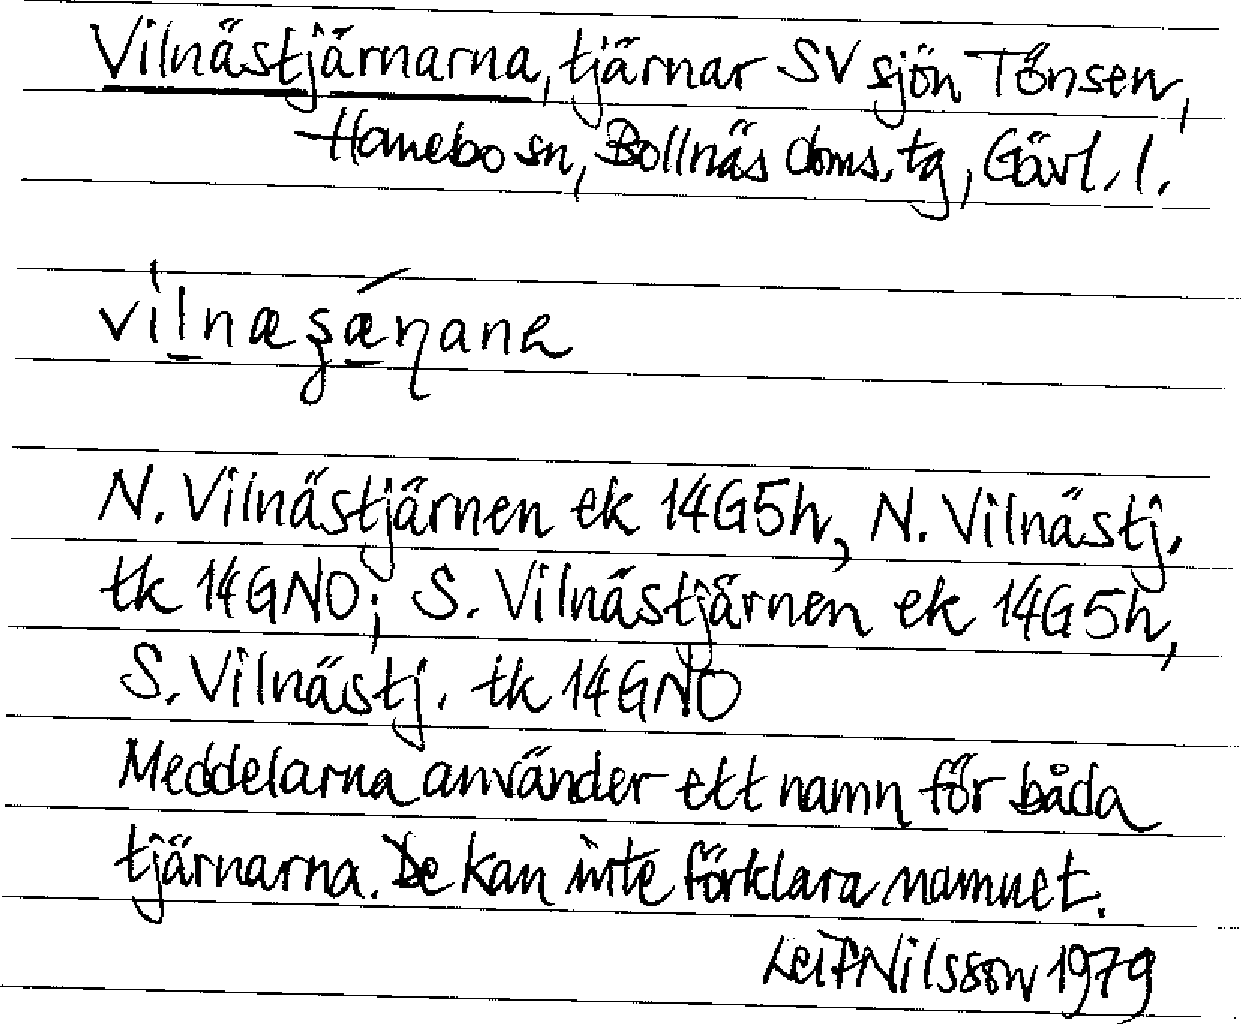 Vilnästjärnarna, tjärnar SV sjön Tönsen,
Hanebo sn, Bollnäs doms. tg, Gävl. l.
N. Vilnästjärnen ek 14G5h, N. Vilnästj.
tk 14GNO; S. Vilnästjärnen ek 14G5h,
S. Vilnästj. tk 14GNO
Meddelarna använder ett namn för båda
tjärnarna. De kan inte förklara namnet.
Leif Nilsson 1979